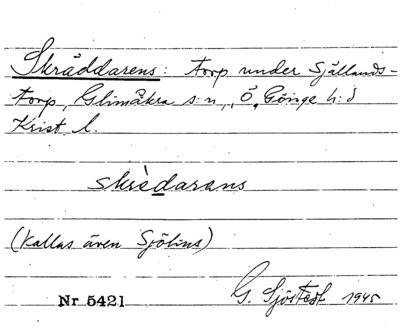 Skräddarens: torp under Själlands-
torp, Glimåkra s:n, Ö. Göinge h:d
Krist. l.
skrèdarans
(Kallas även Sjölins)
Nr 5421 G. Sjöstedt 1945